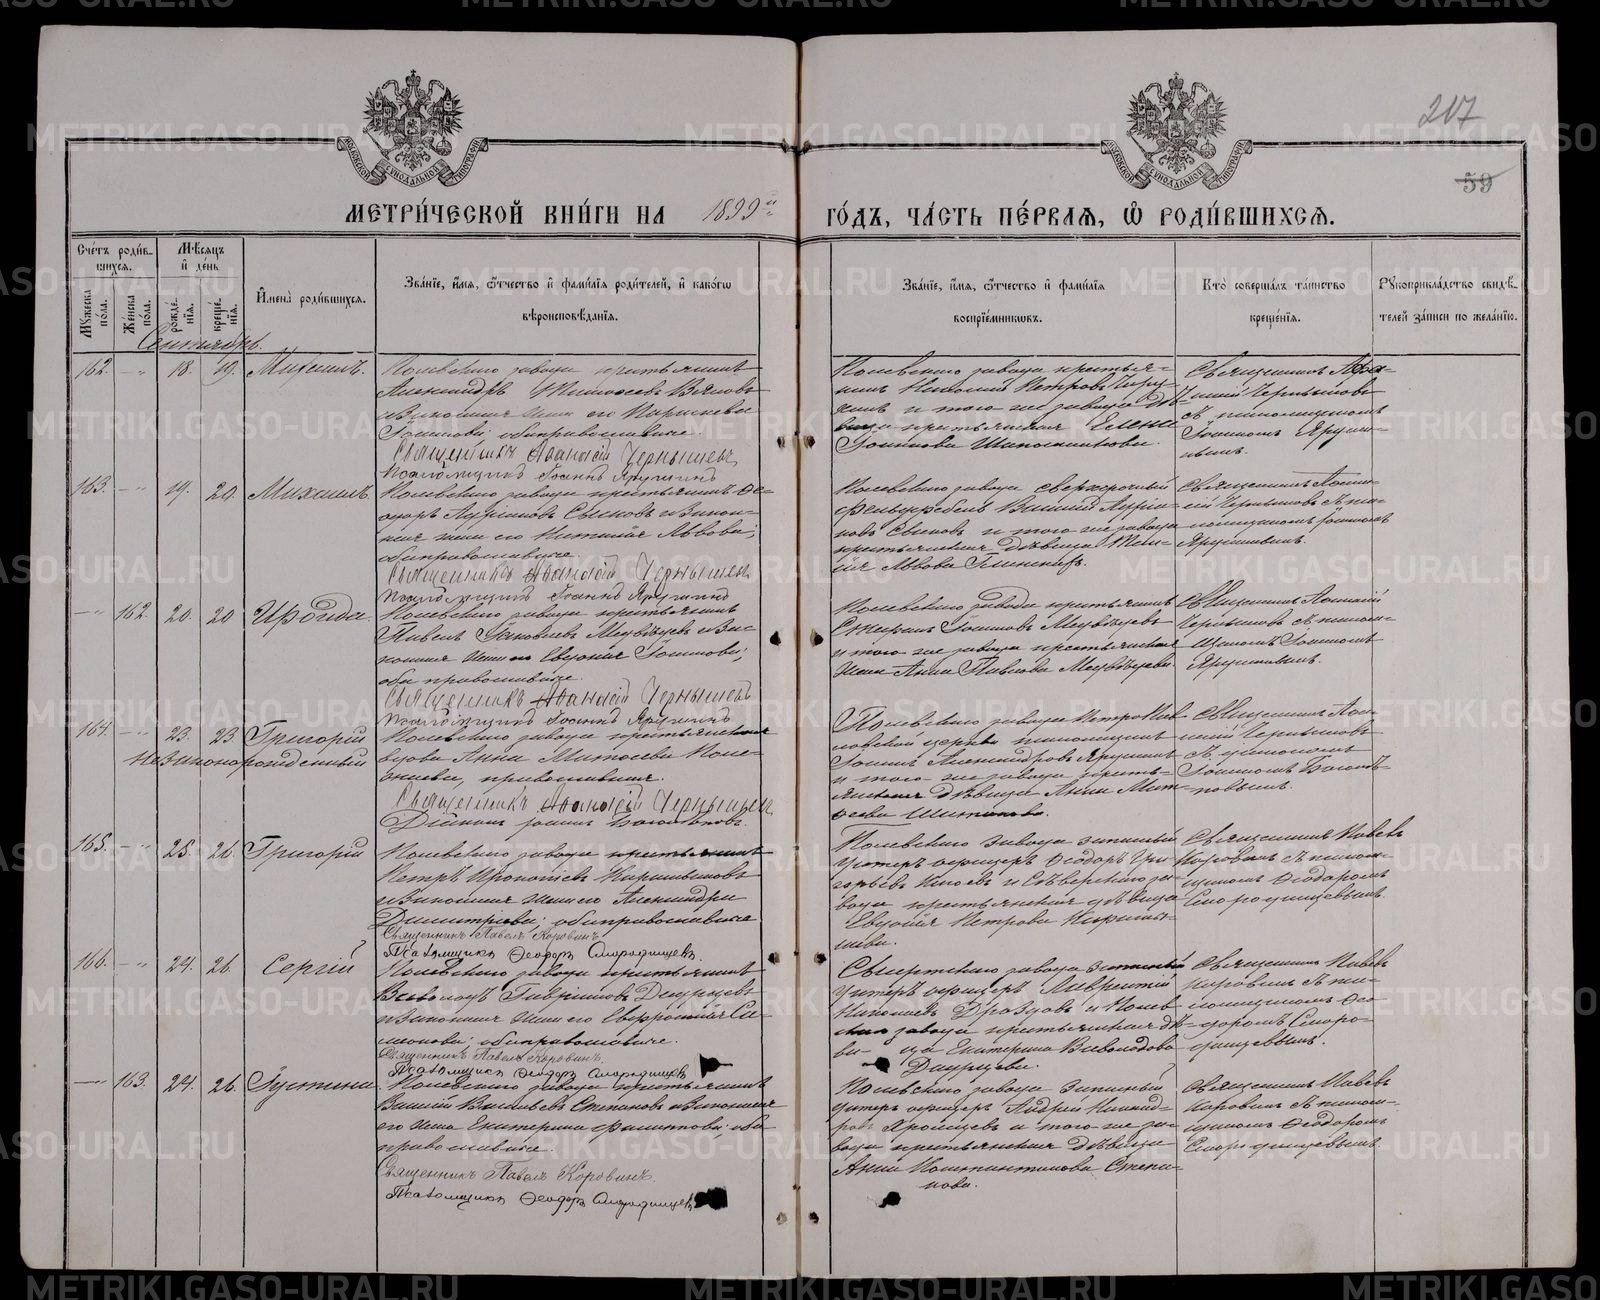 217
59
МОСКОВСКОЙ СѴНОДАЛЬНОЙ ТИПОГРАФІИ
МОСКОВСКОЙ СѴНОДАЛЬНОЙ ТИПОГРАФІИ
МЕТРИ́ЧЕСКОЙ КНИ́ГИ НА 1899й ГО́ДЪ, ЧА́СТЬ ПЕ́РВАѦ, Ѡ҆ РОДИ́ВШИХСѦ.
Сче́тъ роди́в-
шихся.
Мѣ́сяцъ
и҆ де́нь
Мꙋ́жеска по́ла.
Же́нска по́ла.
рожде́нїя.
креще́нїя.
И҆мена̀ роди́вшихся.
Зва́нїе, и҆́мя, ѻ҆́тчество и҆ фами́лїя роди́телей, и҆ како́гѡ
вѣроисповѣ́данїя.
Зва́нїе, и҆́мя, ѻ҆́тчество и҆ фами́лїя
воспрїе́мниковъ.
Кто̀ соверша́лъ та́инство
креще́нїя.
Рꙋкоприкла́дство свидѣ́-
телей за́писи по жела́нїю.
Сентябрь.
162. — „ 18. 19. Михаилъ.
Полевскаго завода крестьянинъ
Александръ
законная жена его Параскева
Іоаннова; оба православные.
Священникъ Аѳанасій Чернышевъ
Псаломщикъ Іоаннъ Ярушинъ
Полевскаго завода крестья-
нинъ Николай Петровъ
и того же завода дѣ-
вица крестьянская Елена
Іоаннова Шапошникова.
Священникъ Аѳана-
сій Чернышевъ
съ псаломщикомъ
Іоанномъ Яруши-
нымъ.
163. — „ 19. 20. Михаилъ.
Полевскаго завода крестьянинъ Ѳе-
одоръ
ная жена его Наталія Львова;
оба православные.
Священникъ Аѳанасій Чернышевъ
Псаломщикъ Іоаннъ Ярушинъ
Полевскаго завода сверхсрочный
фельдфебель
и того же завода
крестьянская дѣвица
Львова
Священникъ Аѳана-
сій Чернышевъ съ пса-
ломщикомъ Іоанномъ
Ярушинымъ.
— „ 162. 20. 20 Ираида.
Полевскаго завода крестьянинъ
Павелъ Іаковлевъ Медвѣдевъ и за-
конная жена его Евдокія Іоаннова;
оба православные.
Священникъ Аѳанасій Чернышевъ
Псаломщикъ Іоаннъ Ярушинъ
Полевскаго завода крестьянинъ
Стефанъ Іоанновъ Медвѣдевъ
и того же завода крестьянская
жена Анна Павлова Медвѣдева.
Священникъ Аѳанасій
Чернышевъ съ псалом-
щикомъ Іоанномъ
Ярушинымъ.
164. — „ 23. 23. Григорій
незаконнорожденный
Полевскаго завода крестьянская
вдова Анна Матѳеева
православная.
Священникъ Аѳанасій Чернышевъ
Діаконъ Іоаннъ Боголѣповъ.
Полевскаго завода Петропав-
ловской церкви псаломщикъ
Іоаннъ Александровъ Ярушинъ
и того же завода кресть-
янская дѣвица Анна Мат-
ѳеева
Священникъ Аѳана-
сій Чернышевъ
съ діакономъ
Іоанномъ Боголѣ-
повымъ.
165. — „ 25. 26. Григорій
Полевскаго завода крестьянинъ
Петръ
и законная жена его Александра
Димитріева; оба православные
Священникъ Павелъ Коровинъ.
Псаломщикъ Ѳеодоръ Смородинцевъ.
Полевскаго завода запасный
унтеръ офицеръ Ѳеодоръ Гри-
горьевъ и Сѣверскаго за-
вода крестьянская дѣвица
Евдокія Петрова
Священникъ Павелъ
Коровинъ съ псалом-
щикомъ Ѳеодоромъ
Смородинцевымъ.
166. — „ 24. 26. Сергій
Полевскаго завода крестьянинъ
Всеволодъ Гавріиловъ
и законная жена его Евфросинія Си-
меонова; оба православные.
Священникъ Павелъ Коровинъ.
Псаломщикъ Ѳеодоръ Смородинцевъ
Сысертскаго завода запасный
унтеръ офицеръ Лаврентій
Николаевъ Дроздовъ и Полев-
скаго завода крестьянская дѣ-
ви- ца Екатерина Всеволодова
Священникъ Павелъ
Коровинъ съ пса-
ломщикомъ Ѳео-
доромъ Сморо-
динцевымъ.
— „ 163. 24. 26. Іустина.
Полевскаго завода крестьянинъ
Василій Васильевъ Степановъ и законная
его жена Екатерина Филиппова; оба
православные.
Священникъ Павелъ Коровинъ.
Псаломщикъ Ѳеодоръ Смородинцевъ
Полевскаго завода запасный
унтеръ офицеръ Андрей
и того же за-
вода крестьянская дѣвица
Анна Константинова Степа-
нова.
Священникъ Павелъ
Коровинъ съ псалом-
щикомъ Ѳеодоромъ
Смородинцевымъ.
METRIKI.GASO-URAL.RU